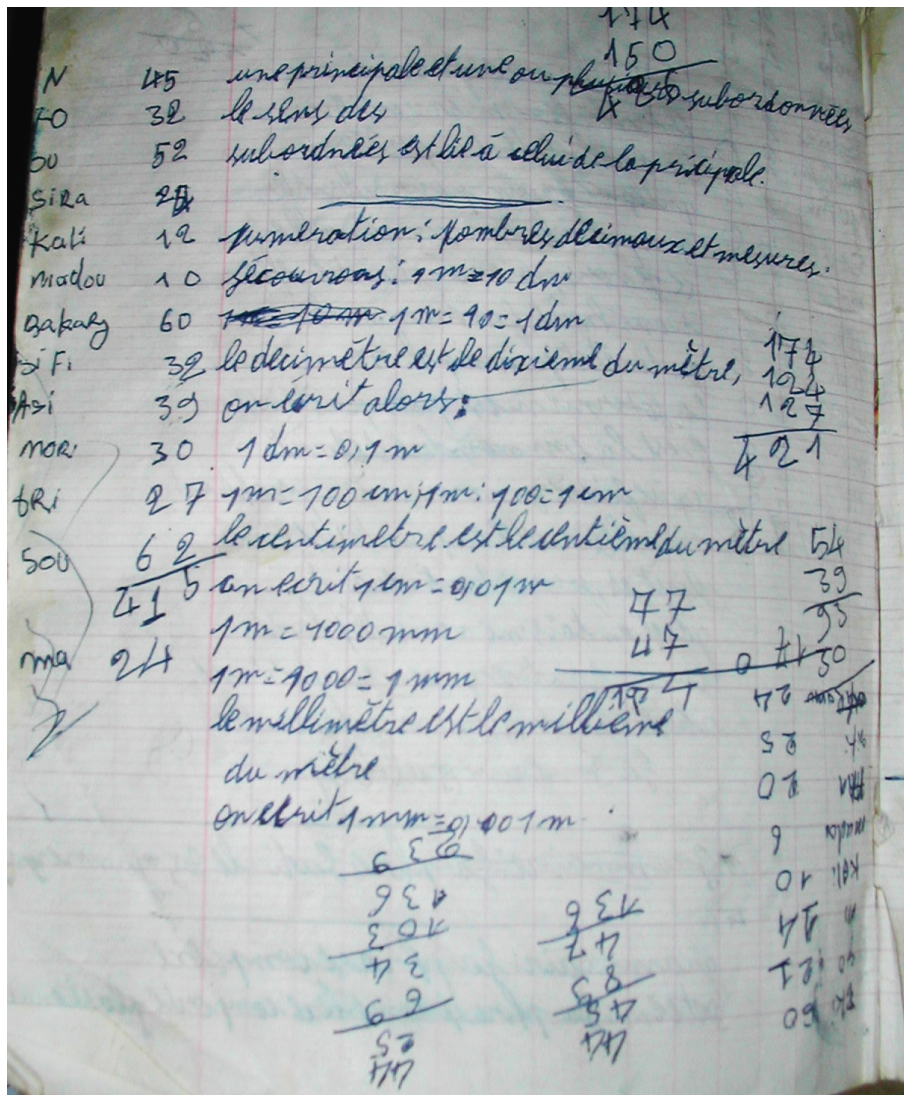 174
150
N 45 une principale et une ou plusieurs subordonnées
FO 32 le sens des
OU 52 subordnées est lié à celui de la pricipale.
SiRa
Kali 12 Numeration: Nombres decimaux et mesures.
madou 10 Découvrons: 1m = 10 dm
Bakary 60 1m = 10 = 1dm
SiFi 32 le decimètre est le dixieme du mètre,
Asi 39 on écrit alors:
MORi 30 1 dm = 0,1 m
174
124
127
421
tRi 27 1m = 100 cm; 1m : 100 = 1 cm
Sou 62 le centimetre est le centième du mètre
415 on ecrit 1 cm = 0,01m
54
39
93
1m = 1000 mm
77
47
ma 24 1m = 1000 = 1 mm
50
le millimètre est le millième
du mètre
on ecrit 1 mm = 0,001m
24
25
20
6
Kali 10
14
21
60
44
25
69
34
103
136
239
44
45
89
47
136